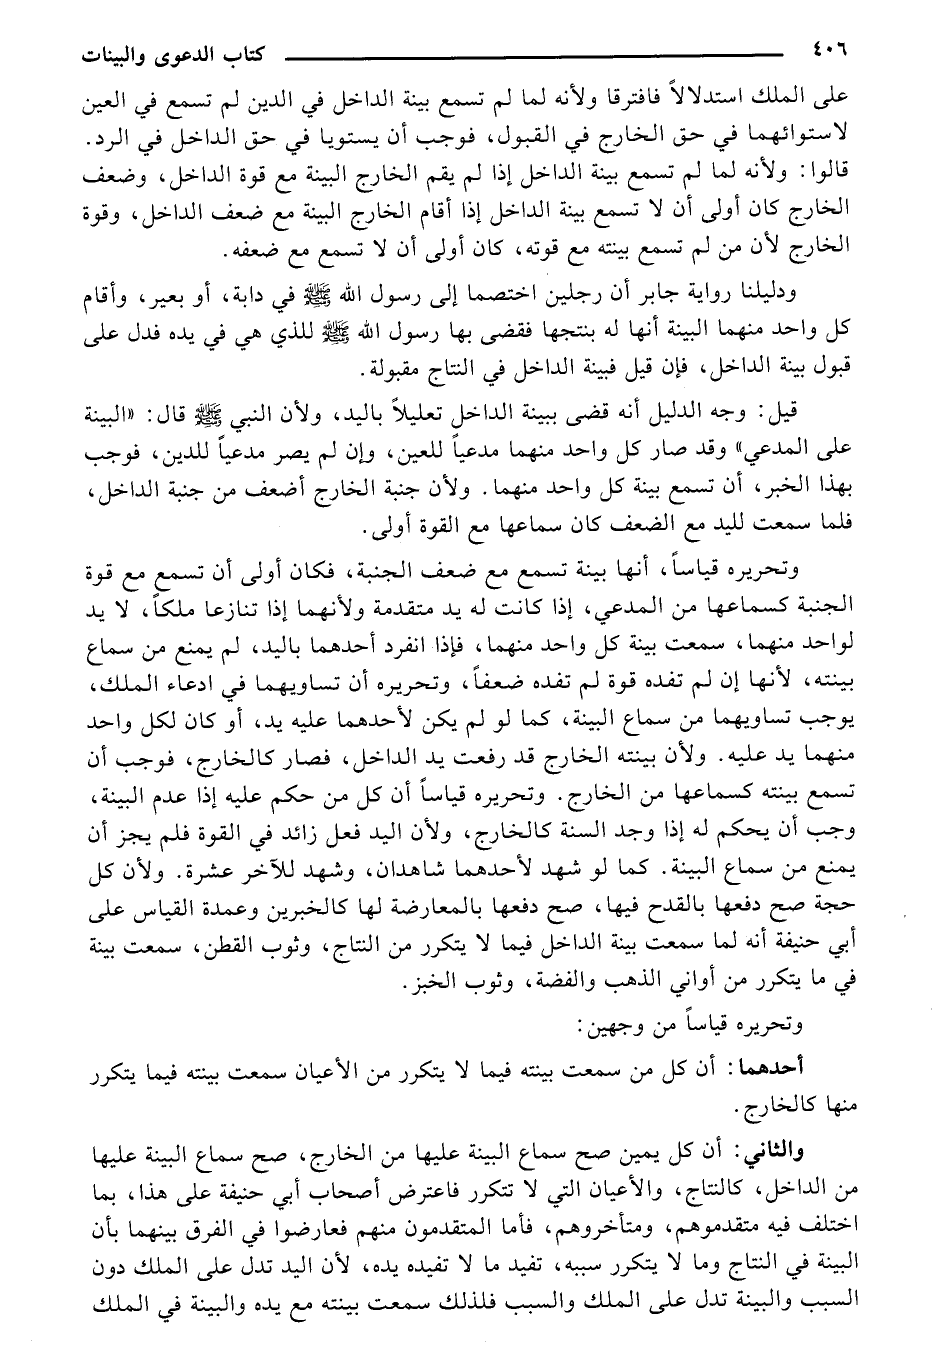 ٤٠٦ كتاب الدعوى والبينات
على الملك استدلالاً فافترقا ولأنه لما لم تسمع بينة الداخل في الدين لم تسمع في العين
لاستوائهما في حق الخارج في القبول، فوجب أن يستويا في حق الداخل في الرد.
قالوا: ولأنه لما لم تسمع بينة الداخل إذا لم يقم الخارج البينة مع قوة الداخل، وضعف
الخارج كان أولى أن لا تسمع بينة الداخل إذا أقام الخارج البينة مع ضعف الداخل، وقوة
الخارج لأن من لم تسمع بينته مع قوته، كان أولى أن لا تسمع مع ضعفه.
ودليلنا رواية جابر أن رجلين اختصما إلى رسول الله ﷺ في دابة، أو بعير، وأقام
كل واحد منهما البينة أنها له بنتجها فقضى بها رسول الله ﷺ للذي هي في يده فدل على
قبول بينة الداخل، فإن قيل فبينة الداخل في النتاج مقبولة.
قيل: وجه الدليل أنه قضى ببينة الداخل تعليلاً باليد، ولأن النبي ﷺ قال: «البينة
على المدعي» وقد صار كل واحد منهما مدعياً للعين، وإن لم يصر مدعياً للدين، فوجب
بهذا الخبر، أن تسمع بينة كل واحد منهما. ولأن جنبة الخارج أضعف من جنبة الداخل،
فلما سمعت لليد مع الضعف كان سماعها مع القوة أولى.
وتحريره قياساً، أنها بينة تسمع مع ضعف الجنبة، فكان أولى أن تسمع مع قوة
الجنبة كسماعها من المدعي، إذا كانت له يد متقدمة ولأنهما إذا تنازعا ملكاً، لا يد
لواحد منهما، سمعت بينة كل واحد منهما، فإذا انفرد أحدهما باليد، لم يمنع من سماع
بينته، لأنها إن لم تفده قوة لم تفده ضعفاً، وتحريره أن تساويهما في ادعاء الملك،
يوجب تساويهما من سماع البينة، كما لو لم يكن لأحدهما عليه يد، أو كان لكل واحد
منهما يد عليه. ولأن بينته الخارج قد رفعت يد الداخل، فصار كالخارج، فوجب أن
تسمع بينته كسماعها من الخارج. وتحريره قياساً أن كل من حكم عليه إذا عدم البينة،
وجب أن يحكم له إذا وجد السنة كالخارج، ولأن اليد فعل زائد في القوة فلم يجز أن
يمنع من سماع البينة. كما لو شهد لأحدهما شاهدان، وشهد للآخر عشرة. ولأن كل
حجة صح دفعها بالقدح فيها، صح دفعها بالمعارضة لها كالخبرين وعمدة القياس على
أبي حنيفة أنه لما سمعت بينة الداخل فيما لا يتكرر من النتاج، وثوب القطن، سمعت بينة
في ما يتكرر من أواني الذهب والفضة، وثوب الخبز.
وتحريره قياساً من وجهين:
أحدهما: أن كل من سمعت بينته فيما لا يتكرر من الأعيان سمعت بينته فيما يتكرر
منها كالخارج.
والثاني: أن كل يمين صح سماع البينة عليها من الخارج، صح سماع البينة عليها
من الداخل، كالنتاج، والأعيان التي لا تتكرر فاعترض أصحاب أبي حنيفة على هذا، بما
اختلف فيه متقدموهم، ومتأخروهم، فأما المتقدمون منهم فعارضوا في الفرق بينهما بأن
البينة في النتاج وما لا يتكرر سببه، تفيد ما لا تفيده يده، لأن اليد تدل على الملك دون
السبب والبينة تدل على الملك والسبب فلذلك سمعت بينته مع يده والبينة في الملك